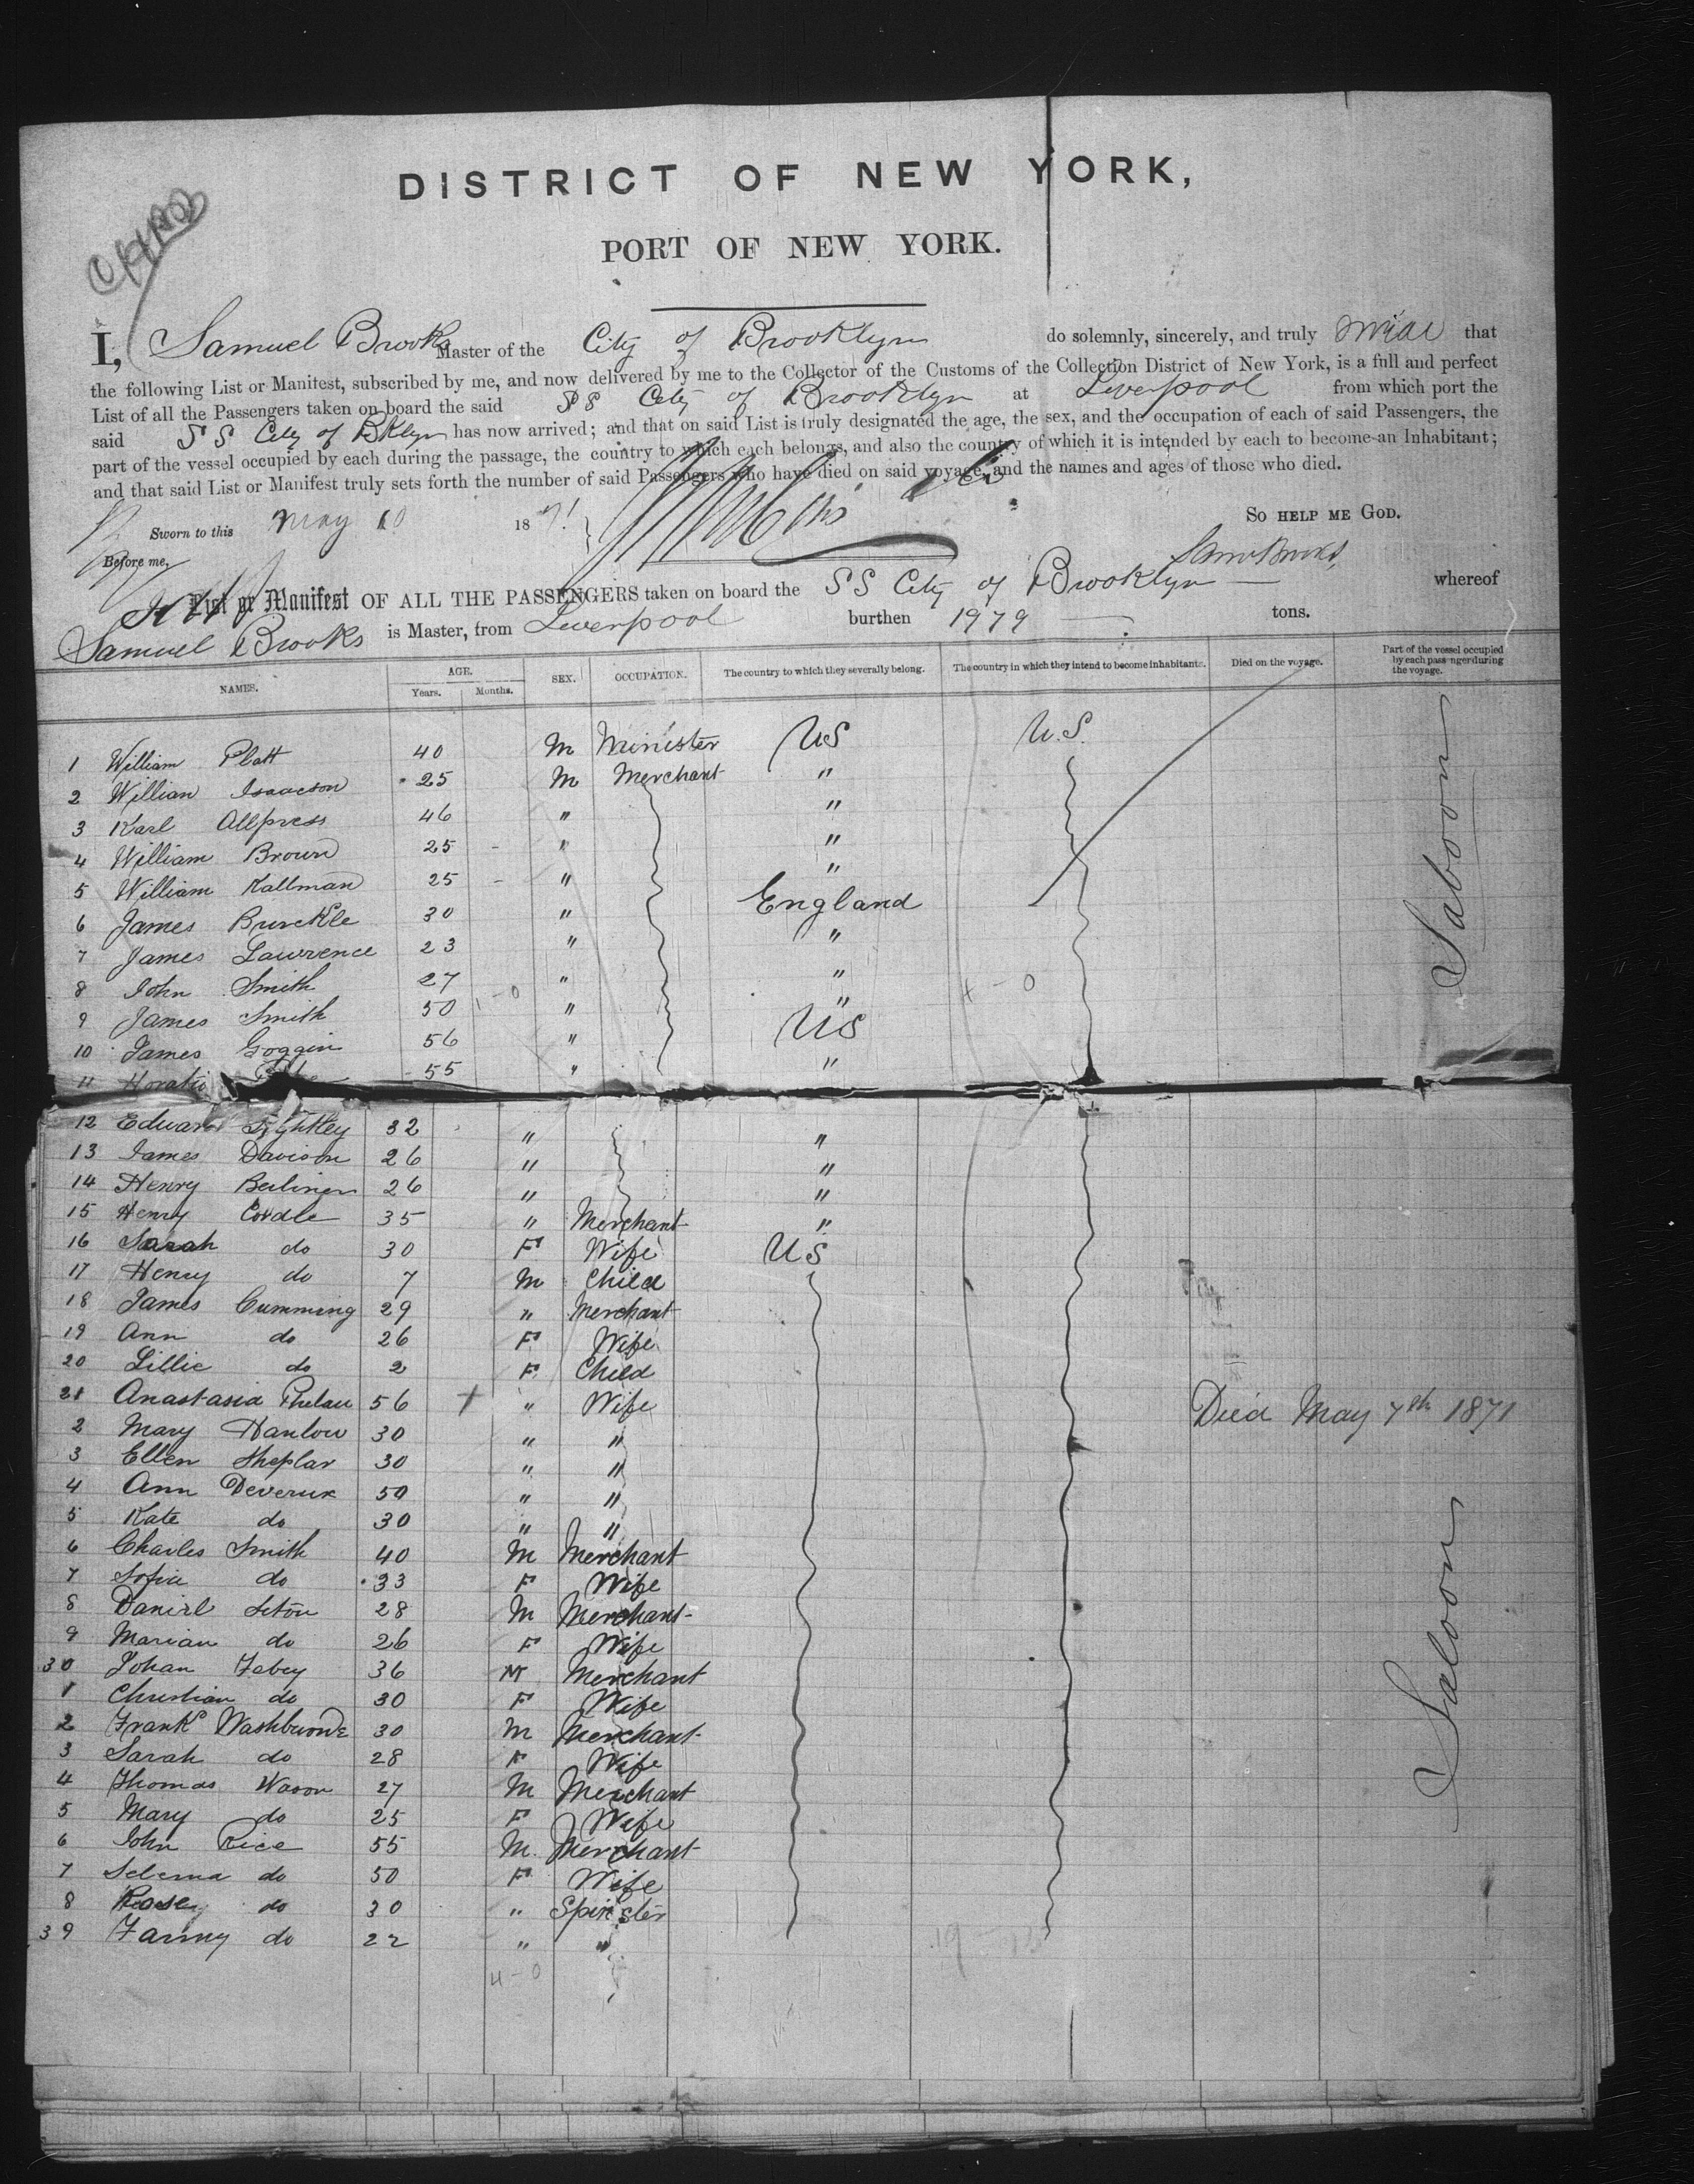 DISTRICT OF NEW YORK,
PORT OF NEW YORK.
I, Samuel Brooks Master of the City of Brooklyn do solemnly, sincerely, and truly swear that
the following List or Manifest, subscribed by me, and now delivered by me to the Collector of the Customs of the Collection District of New York, is a full and perfect
List of all the Passengers taken on board the said SS City of Brooklyn at Liverpool from which port the
said SS City of BKlyn has now arrived; and that on said List is truly designated the age, the sex, and the occupation of each of said Passengers, the
part of the vessel occupied by each during the passage, the country to which each belongs, and also the country of which it is intended by each to become an Inhabitant;
and that said List or Manifest truly sets forth the number of said Passengers who have died on said voyage, and the names and ages of those who died.
Sworn to this May 10 1871 SO HELP ME GOD.
Before me, Saml Brooks,
List or Manifest OF ALL THE PASSENGERS taken on board the SS City of Brooklyn whereof
Samuel Brooks is Master, from Liverpool burthen 1979 tons.
NAMES. AGE. Years. Months. SEX. OCCUPATION. The country to which they severally belong. The country in which they intend to become inhabitants. Died on the voyage. Part of the vessel occupied by each passenger during the voyage.
1 William Platt 40 M Minister US U.S.
2 Willian Isaacson 25 M Merchant "
3 Karl Allpress 46 " "
4 William Brown 25 - " "
5 William Kallman 25 - " "
6 James Burckle 30 " England
7 James Lawrence 23 " "
8 John Smith 27 " "
9 James Smith 50 " "
10 James Goggin 56 " US
11 Horatio 55 " "
Saloon
12 Edward 32 " "
13 James Davison 26 " "
14 Henry 26 " "
15 Henry Cordle 35 " Merchant "
16 Sarah do 30 F Wife US
17 Henry do 7 M Child
18 James Cumming 29 " Merchant
19 Ann do 26 F Wife
20 Lillie do 2 F Child
21 Anastasia Phelan 56 + " Wife Died May 7th 1871
2 Mary Hanlow 30 " "
3 Ellen Sheplar 30 " "
4 Ann Deverux 50 " "
5 Kate do 30 " "
6 Charles Smith 40 M Merchant
7 Sofia do 33 F Wife
8 Daniel Seton 28 M Merchant
9 Marian do 26 F Wife
30 Johan Fabey 36 M Merchant
1 Christian do 30 F Wife
2 Frank Washburne 30 M Merchant
3 Sarah do 28 F Wife
4 Thomas Wason 27 M Merchant
5 Mary do 25 F Wife
6 John Rice 55 M. Merchant
7 Selema do 50 F Wife
8 Rosey do 30 " Spinster
39 Fanny do 22 " "
4-0
Saloon